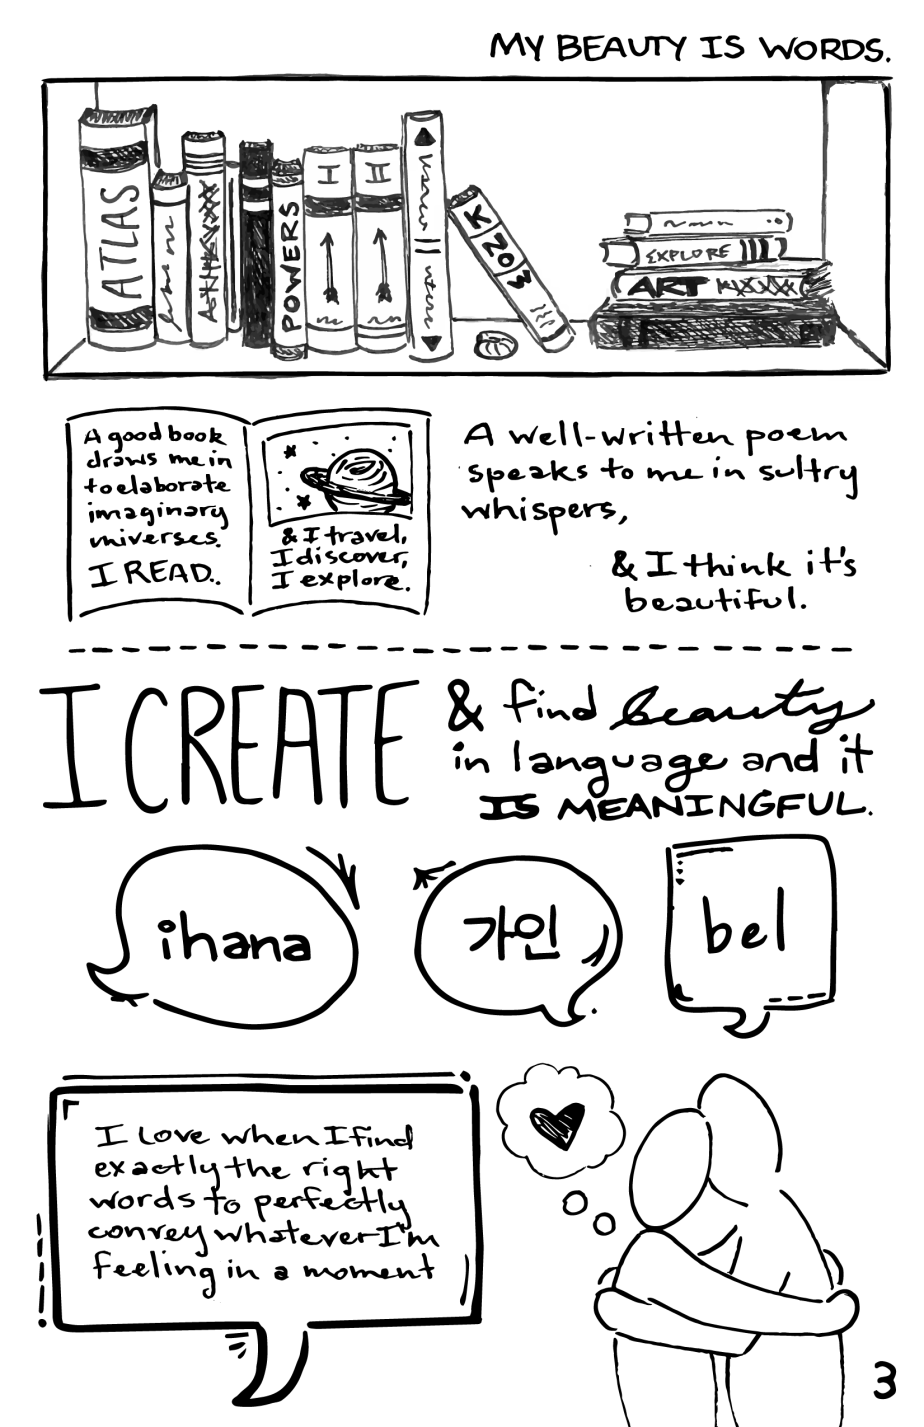 MY BEAUTY IS WORDS.
ATLAS
POWERS
I
II
K
203
EXPLORE
ART
A good book
draws me in
to elaborate
imaginary
universes.
I READ..
& I travel,
I discover,
I explore.
A well-written poem
speaks to me in sultry
whispers,
& I think it's
beautiful.
I CREATE
& find beauty
in language and it
IS MEANINGFUL.
ihana
가인
bel
I Love when I find
exactly the right
words to perfectly
convey whatever I'm
feeling in a moment
3